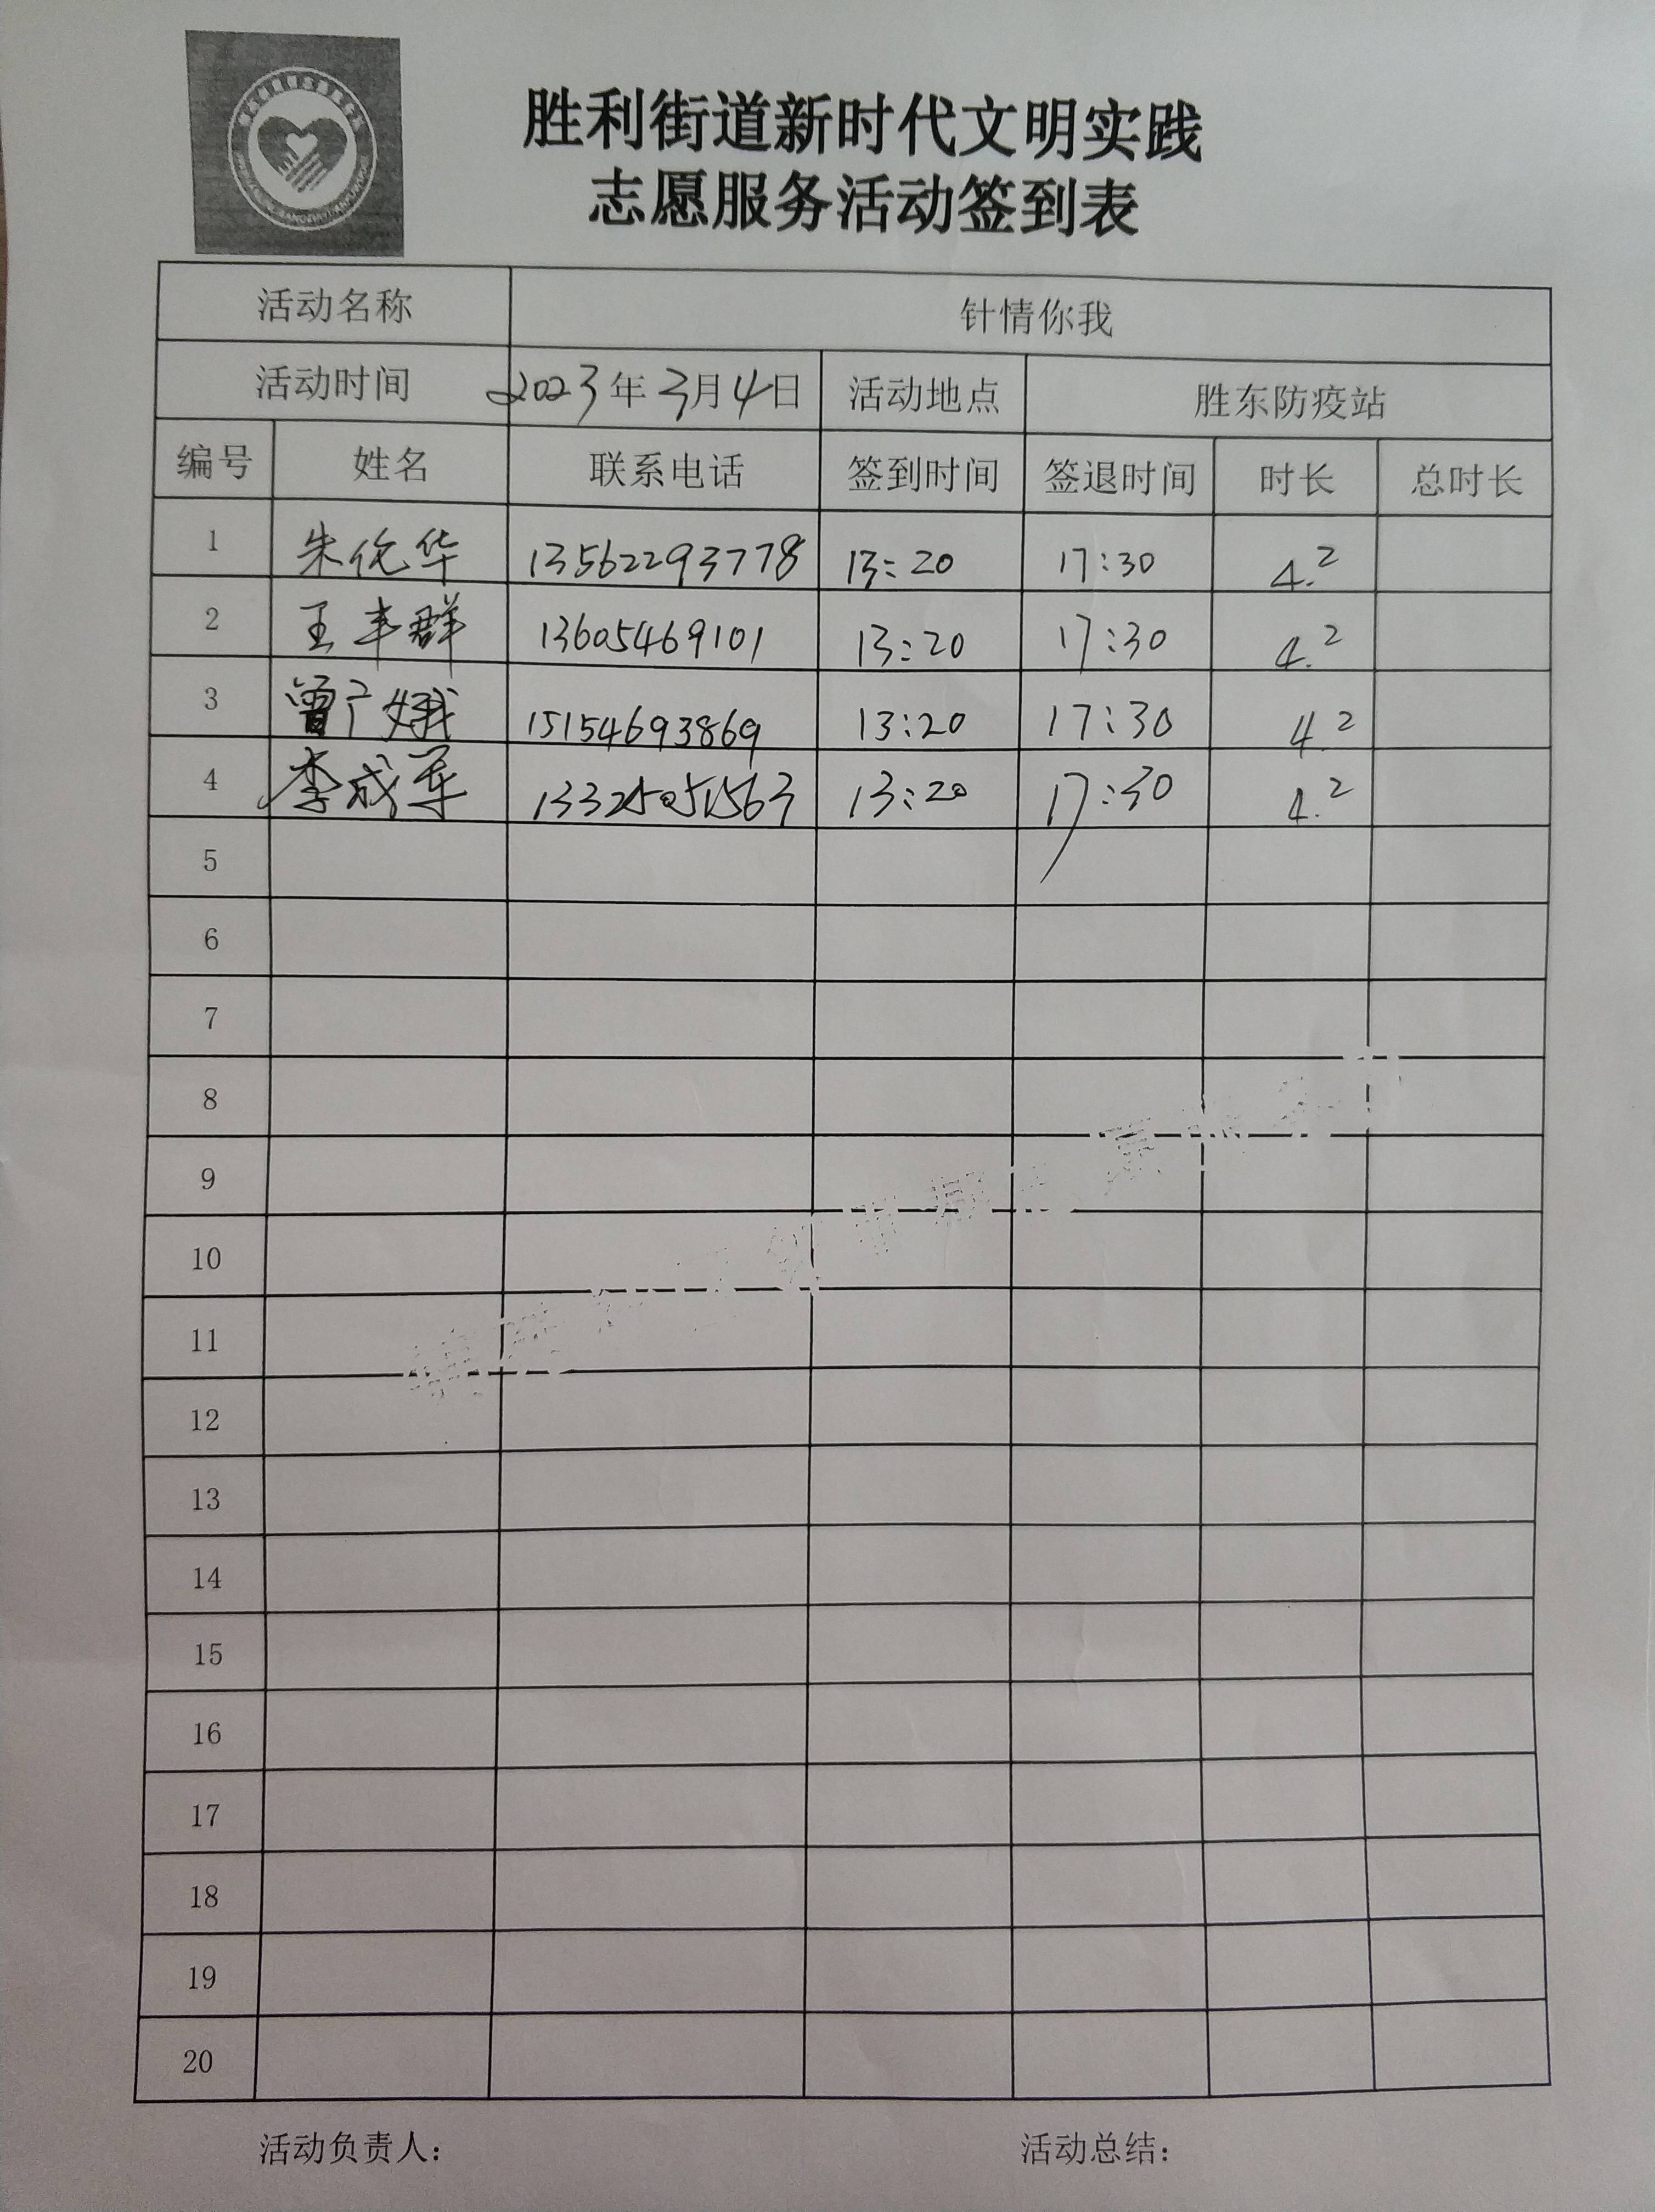 胜利街道新时代文明实践
志愿服务活动签到表
活动名称 针情你我
活动时间 2023年3月4日 活动地点 胜东防疫站
编号 姓名 联系电话 签到时间 签退时间 时长 总时长
1 朱伦华 13562293778 13:20 17:30 4.2
2 王丰群 13605469101 13:20 17:30 4.2
3 曾广娥 15154693869 13:20 17:30 4.2
4 李成军 13:20 17:30 4.2
5
6
7
8
9
10
11
12
13
14
15
16
17
18
19
20
活动负责人: 活动总结: